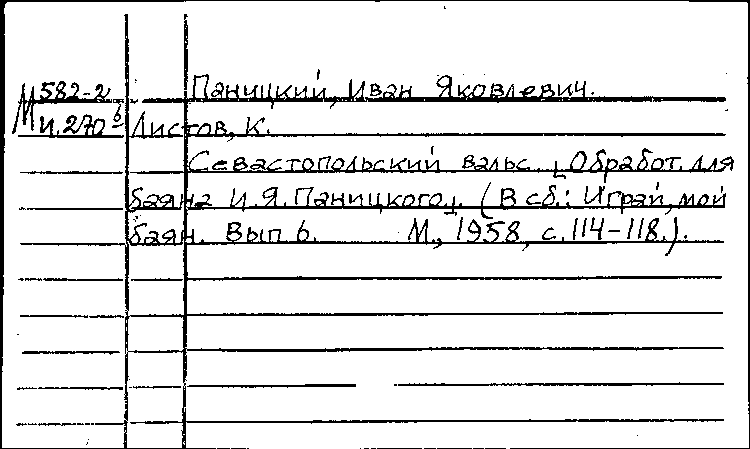 М 582-2 Паницкий, Иван Яковлевич.
И.270 б Листов, К.
Севастопольский вальс. [Обработ. для
баяна И.Я. Паницкого]. (В сб.: Играй, мой
баян. Вып 6. М., 1958, с. 114-118.).